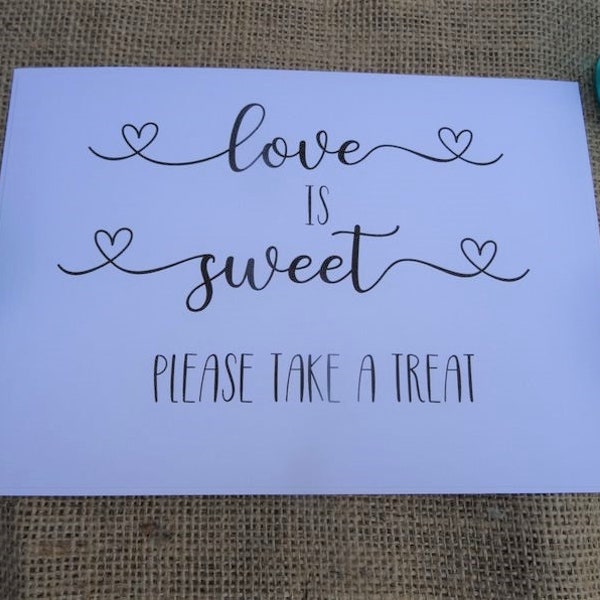 love
IS
sweet
PLEASE TAKE A TREAT